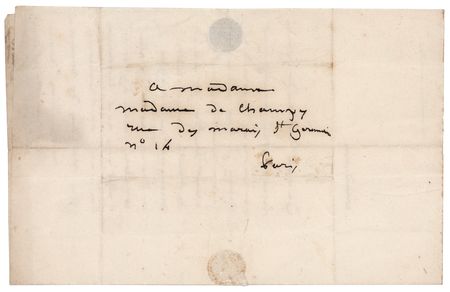 A madame
madame de Champy
rue des marais St Germain
n° 14
Paris